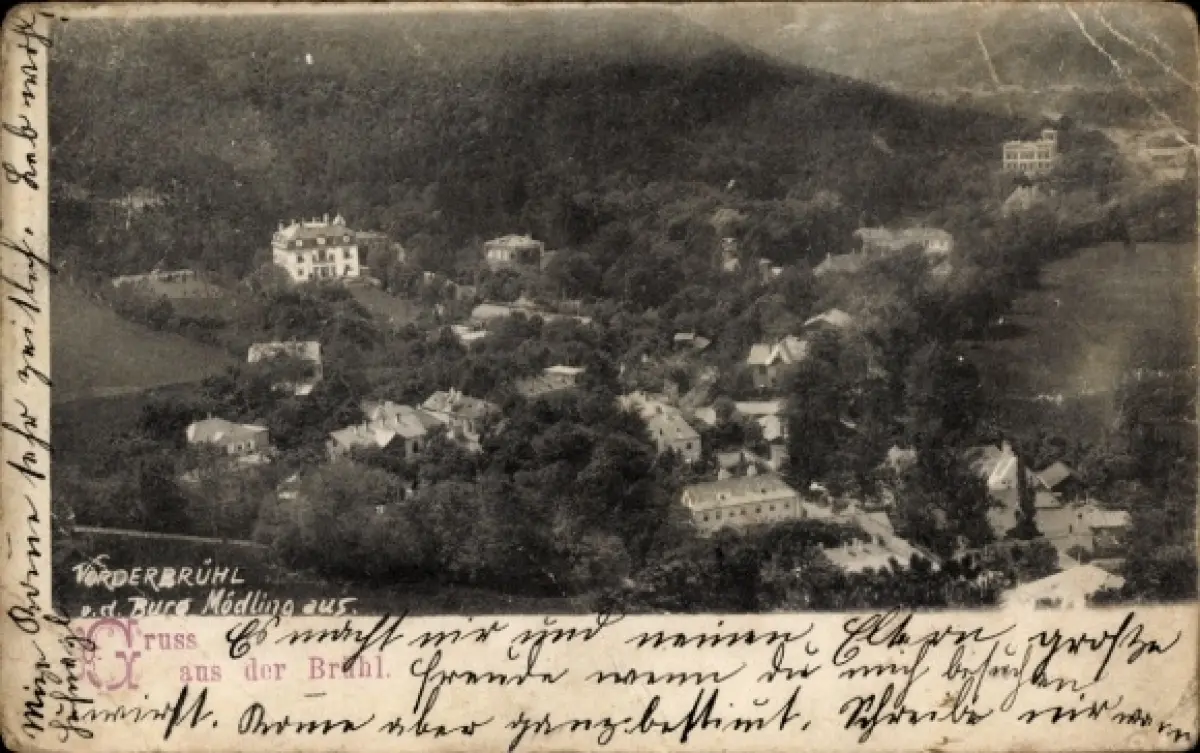 VORDERBRÜHL
v. d. BURG Mödling aus.
Gruss
aus der Brühl.
Es macht mir und meinen Eltern große
Freude wenn du mich besuchen
wirst. Kome aber ganz bestimt. Schreibe mir wann
Kome sehr zeitlich. Leb wohl!